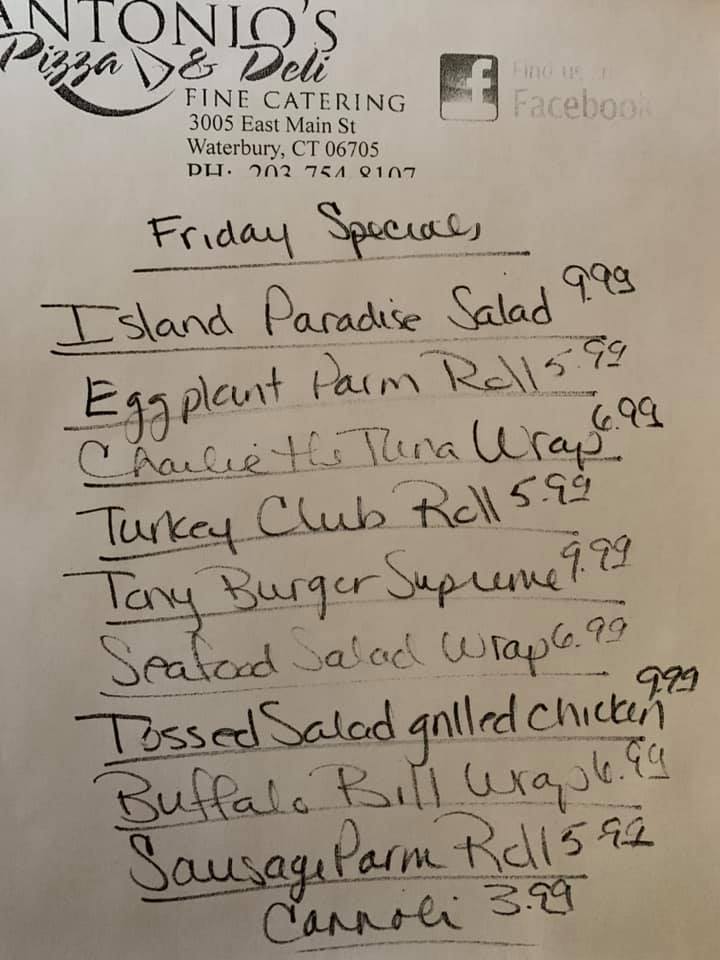 ANTONIO'S
Pizza & Deli
FINE CATERING
3005 East Main St
Waterbury, CT 06705
PH: 203 754 8107
Find us on
Facebook
Friday Specials
Island Paradise Salad 9.99
Eggplant Parm Roll 5.99
Charlie the Tuna Wrap 6.99
Turkey Club Roll 5.99
Tony Burger Supreme 9.99
Seafood Salad Wrap 6.99
Tossed Salad grilled chicken 9.99
Buffalo Bill Wrap 6.99
Sausage Parm Roll 5.99
Cannoli 3.99